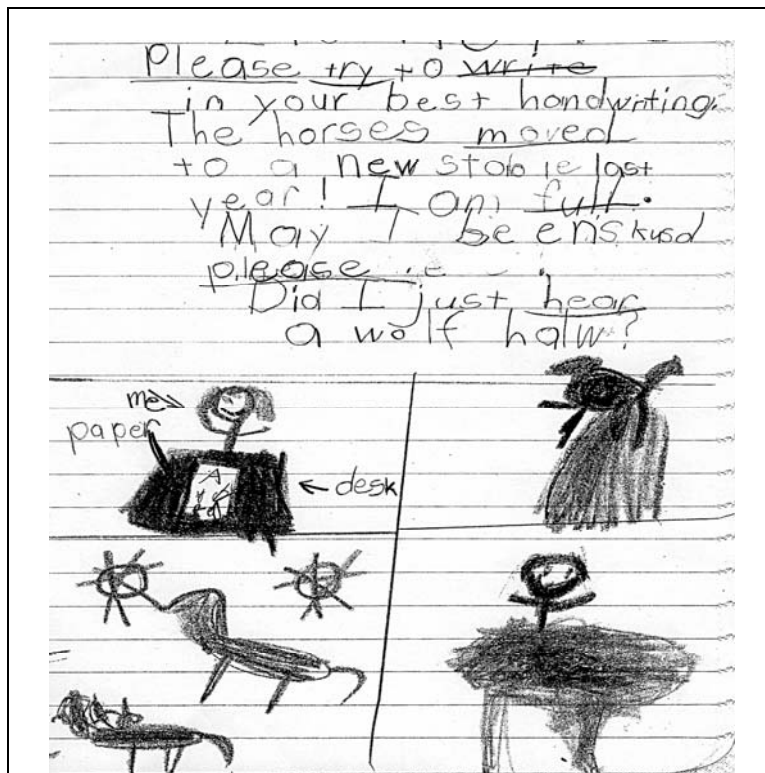 Please try to write
in your best handwriting.
The horses moved
to a new stable last
year! I am full.
May I be enskusd
please
Did I just hear
a wolf halw?
me
paper
A
desk